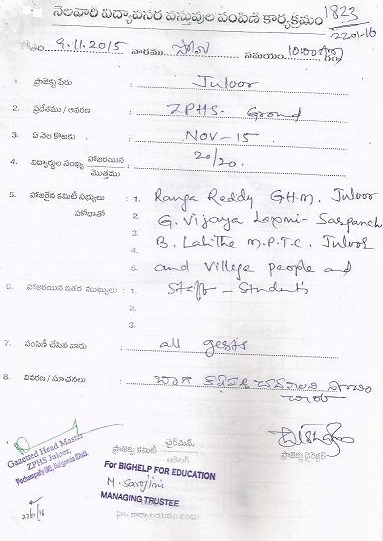 నెలవారి విద్యావసర వస్తువుల పంపిణి కార్యక్రమం 1823
2201-16
తేది: 9.11.2015 వారము సోమ సమయం 10:00
1. ప్రాజెక్టు పేరు : Juloor
2. ప్రదేశము / ఆవరణ : ZPHS- Ground
3. ఏ నెల కొఱకు : NOV-15
4. విద్యార్థుల సంఖ్య హాజరయిన / మొత్తము : 20/20.
5. హాజరైన కమిటీ సభ్యులు హోదాతో : 1. Ranga Reddy G.H.M. Juloor
2. G. Vijaya Laxmi- Sarpanch
3. B. Lalitha M.P.T.C. Juloor
4.
5. and Village people and
6. హాజరయిన ఇతర ముఖ్యులు : 1. Staff - Students
2.
3.
7. పంపిణీ చేసిన వారు : all gests
8. వివరణ / సూచనలు : బాగా
Gazetted Head Master
ZPHS Juloor,
Pochampally (M), Nalgonda (Dist).
ప్రాజెక్టు కమిటీ చైర్మెన్,
ప్రాజెక్టు డైరెక్టర్
For BIGHELP FOR EDUCATION
M. Sarojini
MANAGING TRUSTEE